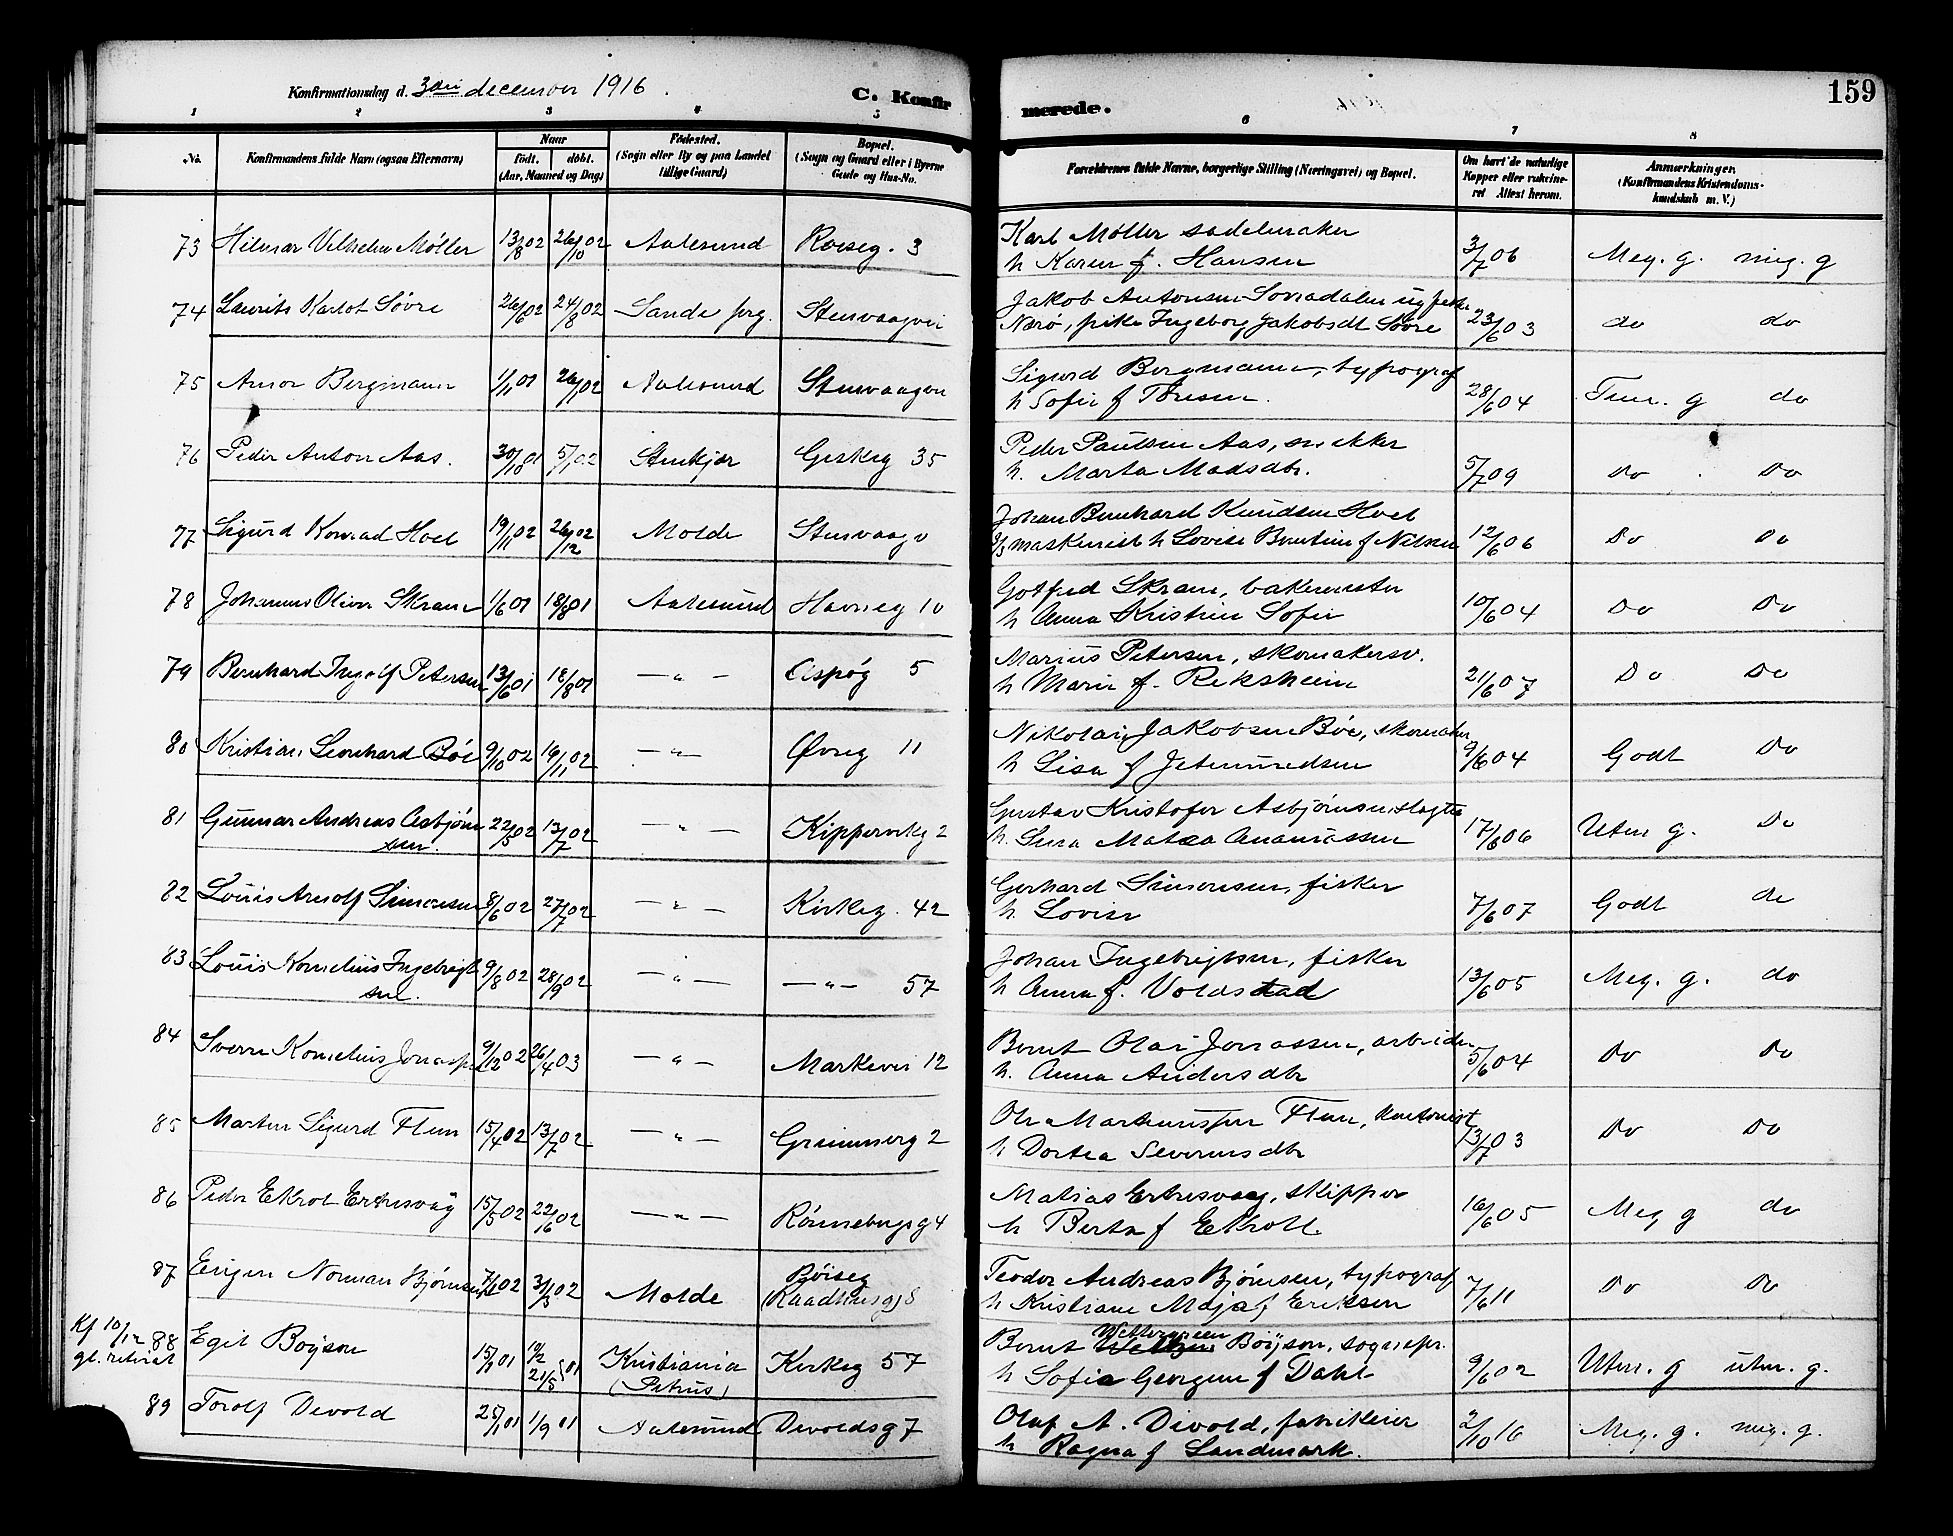 Konfirmationsdag d. 3die december 1916.
C. Konfirmerede.
159
1 2 3 4 5 6 7 8
No.
Konfirmandens fulde Navn (ogsaa Efternavn)
Naar
født. døbt.
(Aar, Maaned og Dag)
Fødested.
(Sogn eller By og paa Landet
tillige Gaard)
Bopæl.
(Sogn og Gaard eller i Byerne
Gade og Hus-No.
Forældrenes fulde Navne, borgerlige Stilling (Næringsvei) og Bopæl.
Om havt de naturlige
Kopper eller vaccine-
ret Attest herom.
Anmærkninger.
(Konfirmandens Kristendoms-
kundskab m. V.)
73 Hilmar Vilhelm Møller 13/8 02 26/10 02 Aalesund Roiseg. 3
Karl Møller sadelmaker
h Karen f. Hansen 3/7 06 Meg. g. meg. g
74 Laurits Karlot Søvre 26/6 02 24/8 02 Sande prg. Stensvaagvei
Jakob Antonsen ug fisker
Nærø, pike Ingeborg Jakobsdt Søvre 23/6 03 do do
75 Arnor Bergmann 1/11 01 26/1 02 Aalesund Stensvaagvei
Sigurd Bergmann, typograf
h Sofie f Thresen. 28/6 04 Tem. g do
76 Peder Anton Aas. 30/10 01 5/1 02 Stenkjær Geskeg 35
Peder Paulsen Aas, snekker
h. Marta Madsdtr. 5/7 09 do Do
77 Sigurd Konrad Hoel 19/11 02 26/12 02 Molde Stensvaagv
Johan Bernhard Knudsen Hoel
maskinist h Lovise Berntine f Nilsen 12/6 06 Do Do
78 Johannes Oliver Skram 1/6 01 18/8 01 Aalesund Havneg 10
Gotfred Skram, bakermester
h Anna Kristine Sofie 10/6 04 Do Do
79 Bernhard Ingolf Petersen 13/6 01 18/8 01 — " — Aspøg 5
Marius Petersen, skomakersv.
h Marie f. Reksheim 21/6 07 Do Do
80 Kristian Leonhard Bøe 9/10 02 16/11 02 — " — Øvreg 11
Nikolai Jakobsen Bøe, skomaker
h Lisa f Jetmundsen 9/6 04 Godt Do
81 Gunnar Andreas Asbjørn
sen. 22/5 02 13/7 02 — " — Kippervikg 2
Gustav Kristofer Asbjørnsen slagter
h. Lina Matea Ananiassen 17/6 06 Utm g. Do
82 Louis Arnolf Simonsen 8/6 02 27/7 02 — " — Kirkeg. 42
Gerhard Simonsen, fisker
h. Lovise 7/6 07 Godt do
83 Louis Kornelius Ingebrigt
sen. 9/8 02 28/9 02 — " — — " — 57
Johan Ingebrigtsen, fisker
h Anna f. Voldstad 13/6 05 Meg. g. do
84 Sverre Kornelius Jonassen 9/12 02 26/4 03 — " — Markevei 12
Bernt Olai Jonassen, arbeider
h. Anna Andersdtr 5/6 04 Do Do
85 Martin Sigurd Flem 15/4 02 13/7 02 — " — Grimmerg 2
Ole Martinussen Flem, kontorist
h Dortea Severinsdtr 13/7 03 Do Do
86 Peder Ekrol Ertresvåg 15/5 02 22/16 02 — " — Rønnebergsg 4
Matias Ertresvaag, skipper
h Berta f Ekroll. 16/6 05 Meg g do
87 Eugen Norman Bjørnsen 7/1 02 31/3 02 Molde Røiseg
(Raadhusg) 8
Teodor Andreas Bjørnsen, typograf
h Kristiane Maja f Eriksen 7/6 11 Do Do
Kf 10/12 88 Egil Boyson 15/1 01 19/2 21/5 01 Kristiania
(Petrus) Kirkeg 57
Bernt Wettergreen Böÿson, sognepr.
h Sofie Georgine f Dahl 9/6 02 Utm. g utm. g.
89 Torolf Devold 25/1 01 1/9 01 Aalesund Devoldsg 7
Olaf A. Devold, fabrikeier
h Ragna f Landmark. 2/10 16 Meg. g. meg. g.